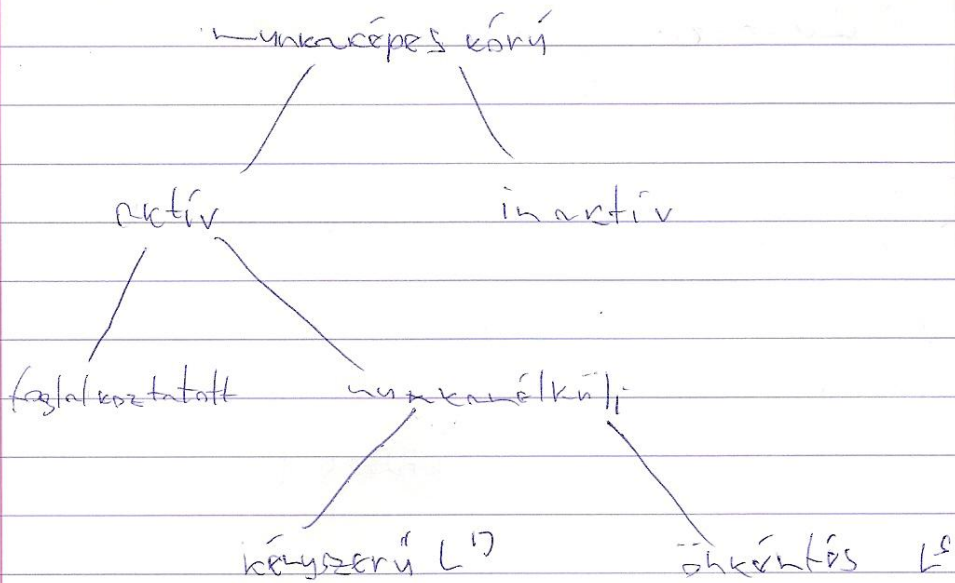 munkaképes korú
aktív inaktív
foglalkoztatott munkanélküli
kényszerű L^D önkéntes L^S